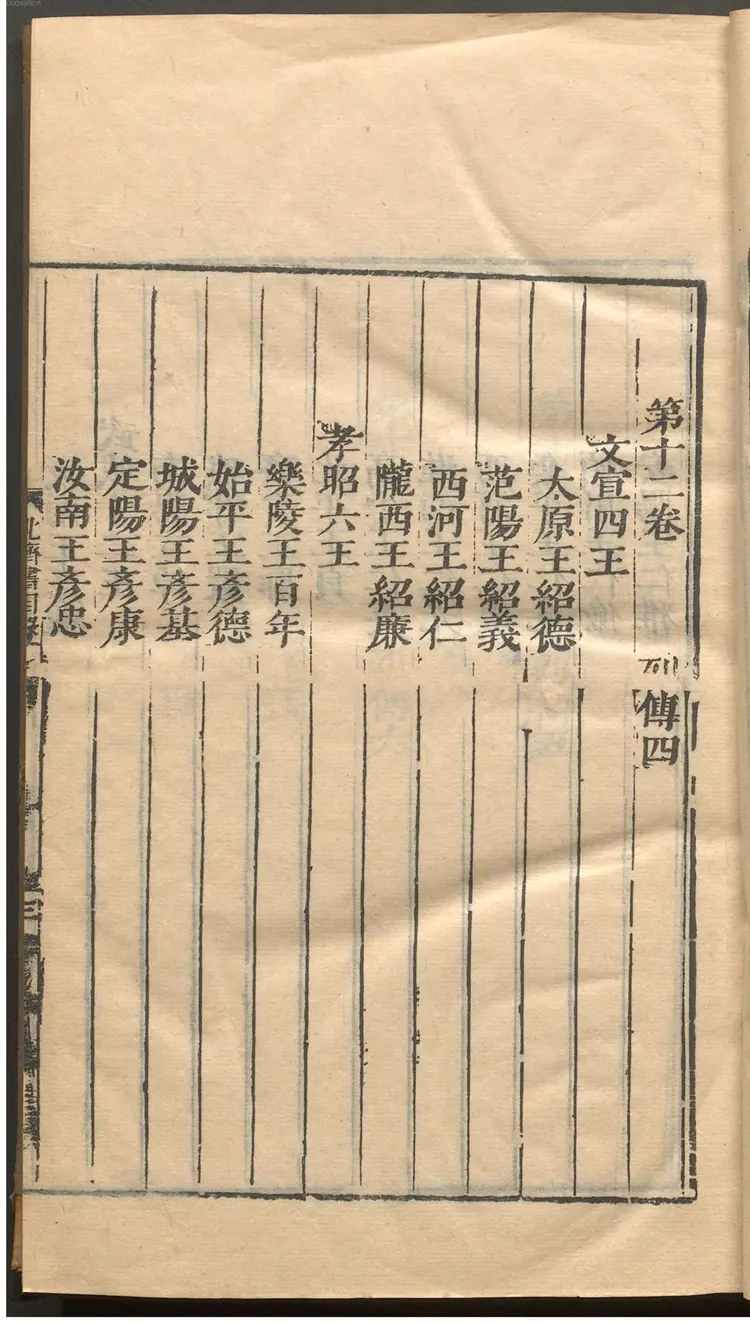 第十二卷 列傳四
文宣四王
太原王紹德
范陽王紹義
西河王紹仁
隴西王紹廉
孝昭六王
樂陵王百年
始平王彥德
城陽王彥基
定陽王彥康
汝南王彥忠
北齊書目錄
三